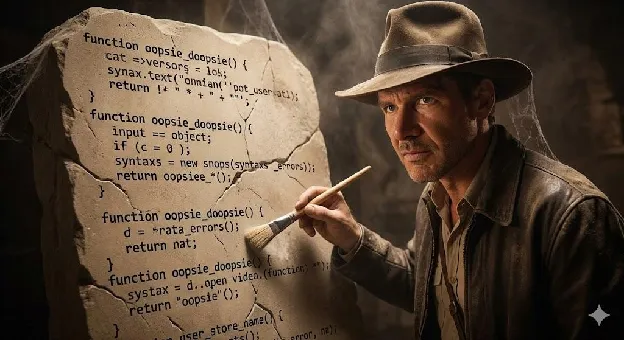 function oopsie_doopsie() {
cat =>versors = lok;
synax.text("onmian(''pot_user=atl);
return !+ " * + " + "'';
}
function oopsie_doopsie() {
input == object;
if (c = 0 );
syntaxs = new snops(syntaxs _errors));
return oopsiee_"();
}
function oopsie_doopsie() {
d = "rata_errors();
return nat;
}
function oopsie_doopsie() {
systax = d..open viden.(function) "");
return "oopsie"();
}
user_store_name() {
error,